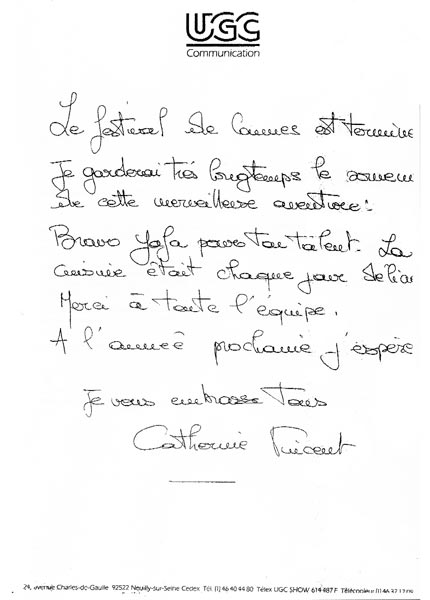 UGC
Communication
Le festival de Cannes est terminé
Je garderai très longtemps le souven
de cette merveilleuse aventure.
Bravo Yafa pour ton talent. La
cuisine était chaque jour délia
Merci à toute l'équipe.
A l'année prochaine j'espère
Je vous embrasse tous
Catherine Vincent
24, avenue Charles-de-Gaulle 92522 Neuilly-sur-Seine Cedex Tél. (1) 46 40 44 80 Télex UGC SHOW 614 487 F Télécopieur (1) 46 37